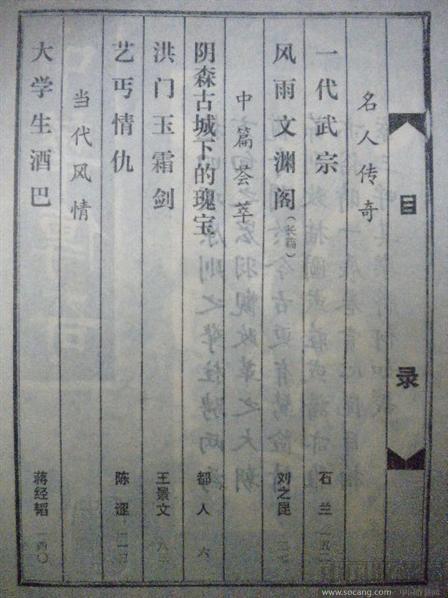 目录
名人传奇
一代武宗 石兰
风雨文渊阁(长篇) 刘之昆
中篇荟萃
阴森古城下的瑰宝 都人 六
洪门玉霜剑 王景文
艺丐情仇 陈涩
当代风情
大学生酒巴 蒋经韬 一四〇
www.socang.com